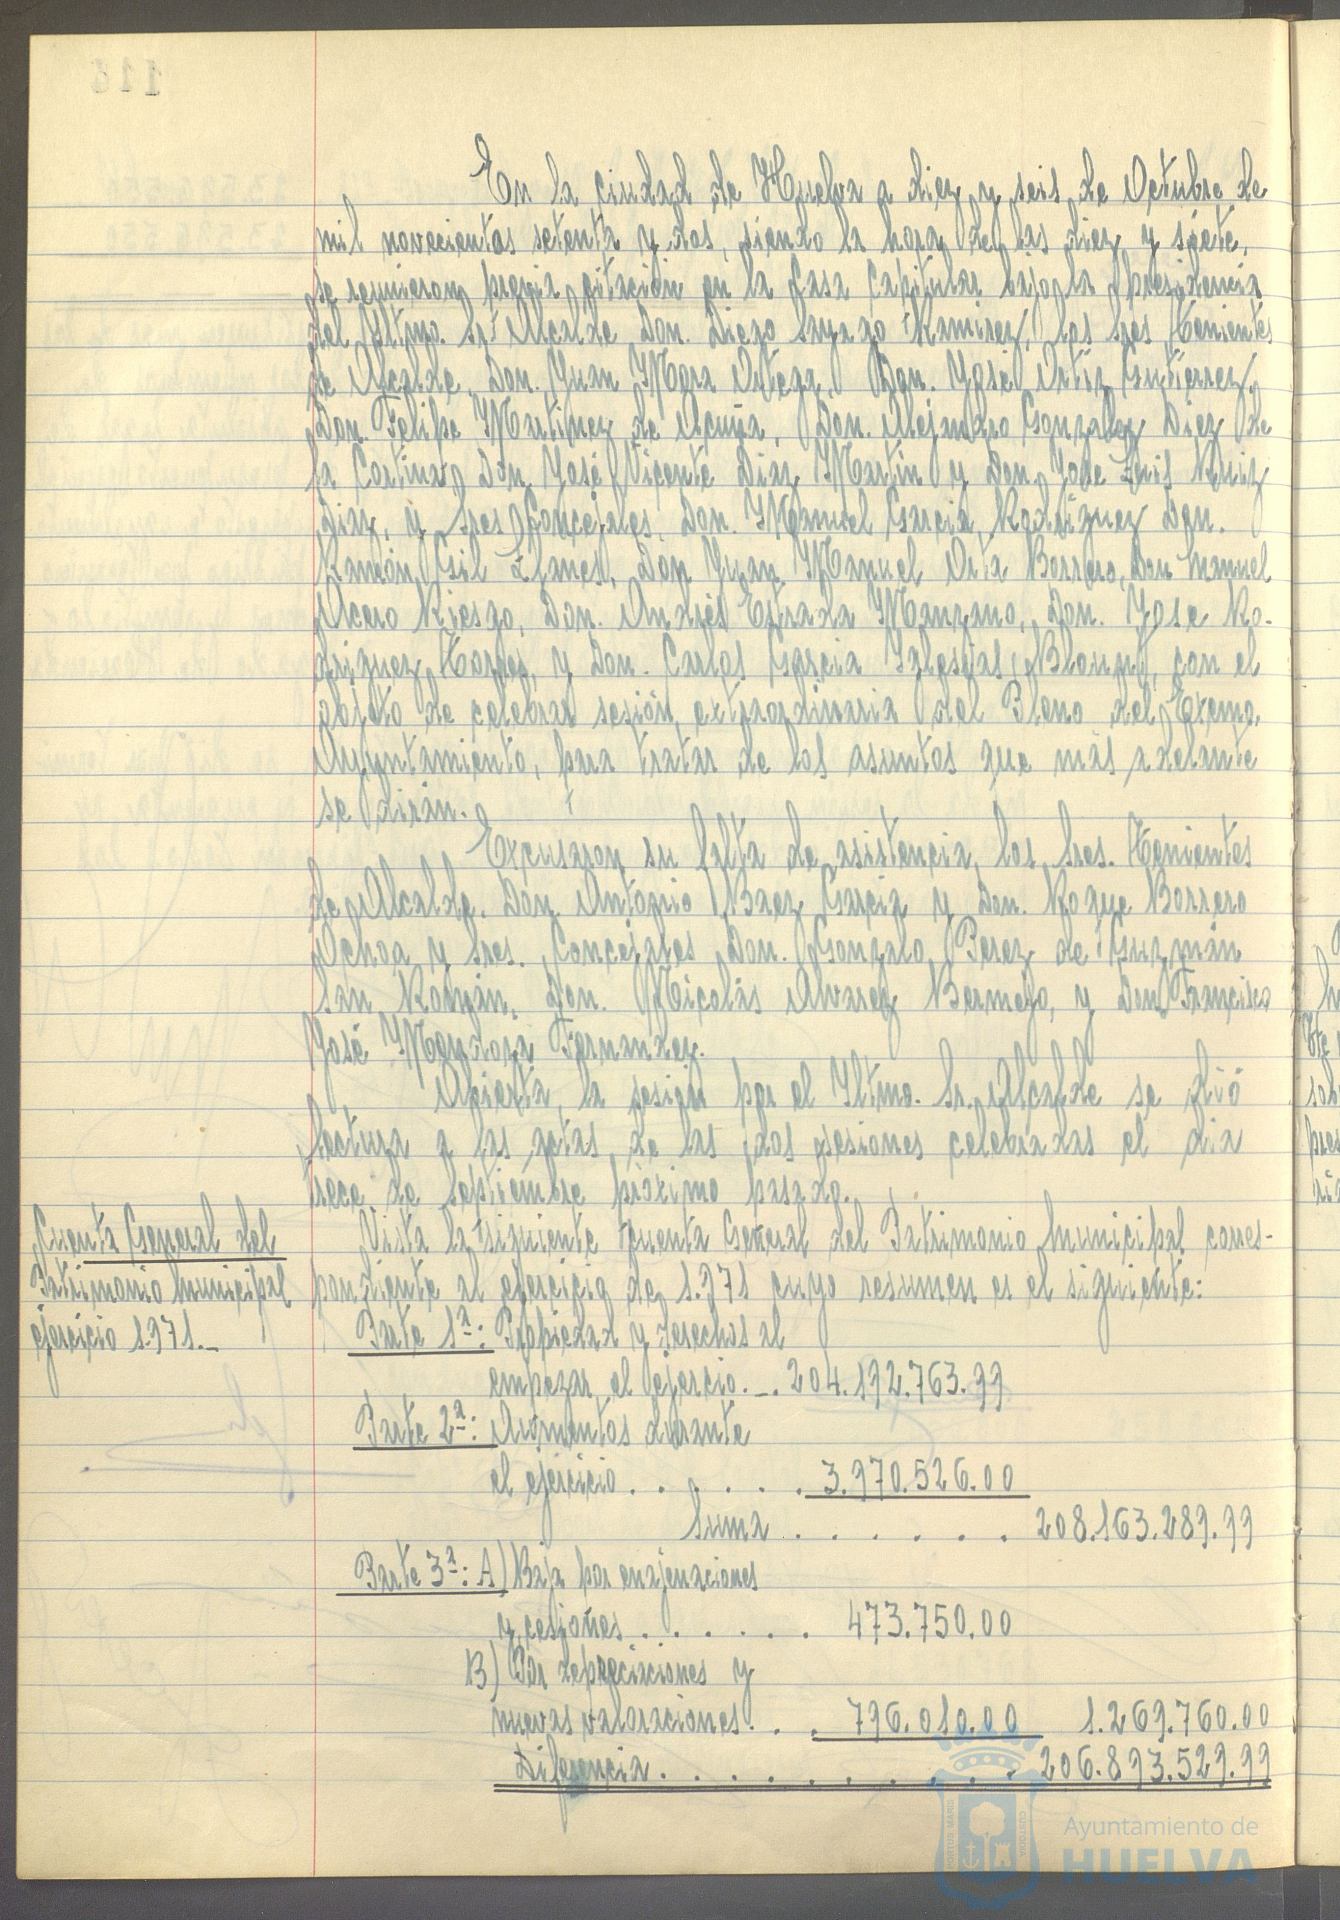 En la ciudad de Huelva a diez y seis de Octubre de
mil novecientos setenta y dos, siendo la hora de las diez y siete,
se reunieron previa citación en la Casa Capitular bajo la presidencia
del Iltmo. Sr. Alcalde Don. Diego Sayago Ramirez, los Sres Tenientes
de Alcalde, Don. Juan Mora Ortega, Don. José Ortiz Gutierrez,
Don. Felipe Martinez de Acuña, Don. Alejandro Gonzalez Diez de
la Cortina, Don José Vicente Diaz Martin y Don Jose Luis Ruiz
Diaz, y Sres Concejales, Don. Manuel Garcia Rodriguez Don.
Ramón Gil Llanes, Don Juan Manuel Orta Borrero, Don Manuel
Acero Riesgo, Don. Andrés Estrada Manzano, Don. Jose Ro-
driguez Torres, y Don. Carlos Garcia Iglesias, con el
objeto de celebrar sesión extraordinaria del Pleno del Excmo.
Ayuntamiento, para tratar de los asuntos que más adelante
se dirán.
Excusaron su falta de asistencia los Sres. Tenientes
de Alcalde, Don Antonio Baez Garcia y Don. Roque Borrero
Ochoa y Sres. Concejales Don. Gonzalo Perez de Guzmán
San Román, Don. Nicolás Alvarez Bermejo, y Don Francisco
José Mendoza Fernandez.
Abierta la sesión por el Iltmo. Sr. Alcalde se dió
lectura a las actas de las dos sesiones celebradas el dia
trece de Septiembre próximo pasado.
Cuenta General del
Patrimonio Municipal
ejercicio 1.971._
Vista la siguiente Cuenta General del Patrimonio Municipal corres-
pondiente al ejercicio de 1.971 cuyo resumen es el siguiente:
Parte 1ª: Propiedad y derechos al
empezar el ejercio._. 204.192.763.99
Parte 2ª: Aumentos durante
el ejercicio . . . . . . 3.970.526.00
Suma . . . . . . 208.163.289.99
Parte 3ª: A) Baja por enajenaciones
y cesiones . . . . . . 473.750.00
B) Por depreciaciones y
nuevas valoraciones . . . 796.010.00 1.269.760.00
Diferencia . . . . . . . . . . 206.893.529.99
Ayuntamiento de
HUELVA